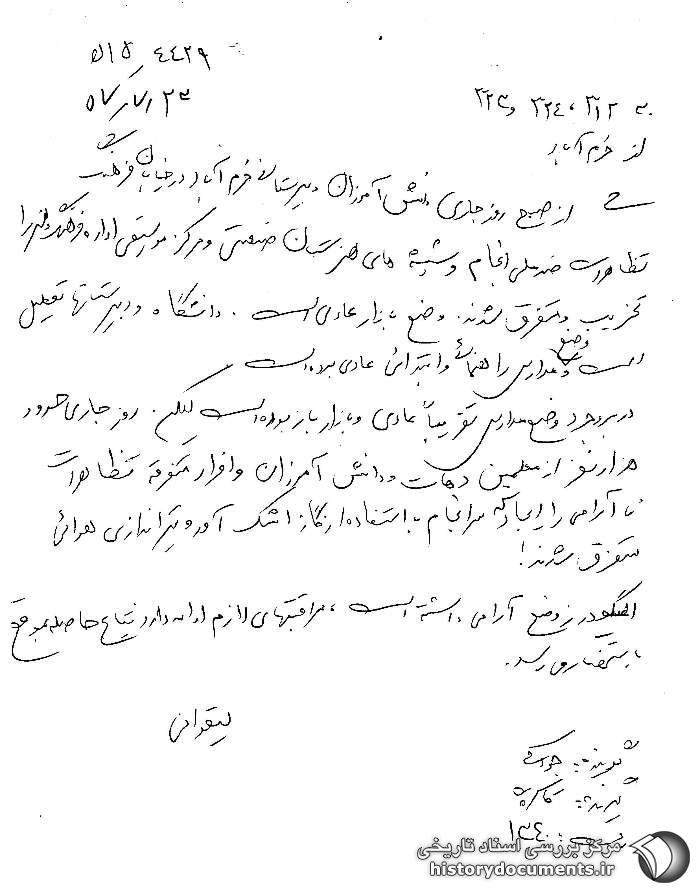 ۴۴۲۹ / ۵ ﻫ ۱
۵۷/۷/۲۳
به ۳۱۲ ، ۳۲۴ و ۳۲۳
از خرم آباد
از صبح روز جاری دانش آموزان دبیرستانهای خرم آباد در خیابان فرهنگ
تظاهرات ضد ملی انجام و شیشه های هنرستان صنعتی و مرکز موسیقی اداره فرهنگ و هنر را
تخریب و متفرق شدند. وضع بازار عادی است. دانشگاه و دبیرستانها تعطیل
است و وضع مدارس راهنمائی و ابتدائی عادی بوده است
در بروجرد وضع مدارس تقریباً عادی و بازار باز بوده است لیکن روز جاری حدود
هزار نفر از معلمین دهات و دانش آموزان و افراد متفرقه تظاهرات
نا آرامی را ایجاد که سرانجام با استفاده از گاز اشک آور و تیراندازی هوائی
متفرق شدند!
الیگودرز وضع آرامی داشته است ، مراقبتهای لازم ادامه دارد نتایج حاصله بموقع
باستحضار می رسد.
لیقوانی
گوینده:
گیرنده:
ساعت: ۱۳۴۰
مرکز بررسی اسناد تاریخی
historydocuments.ir